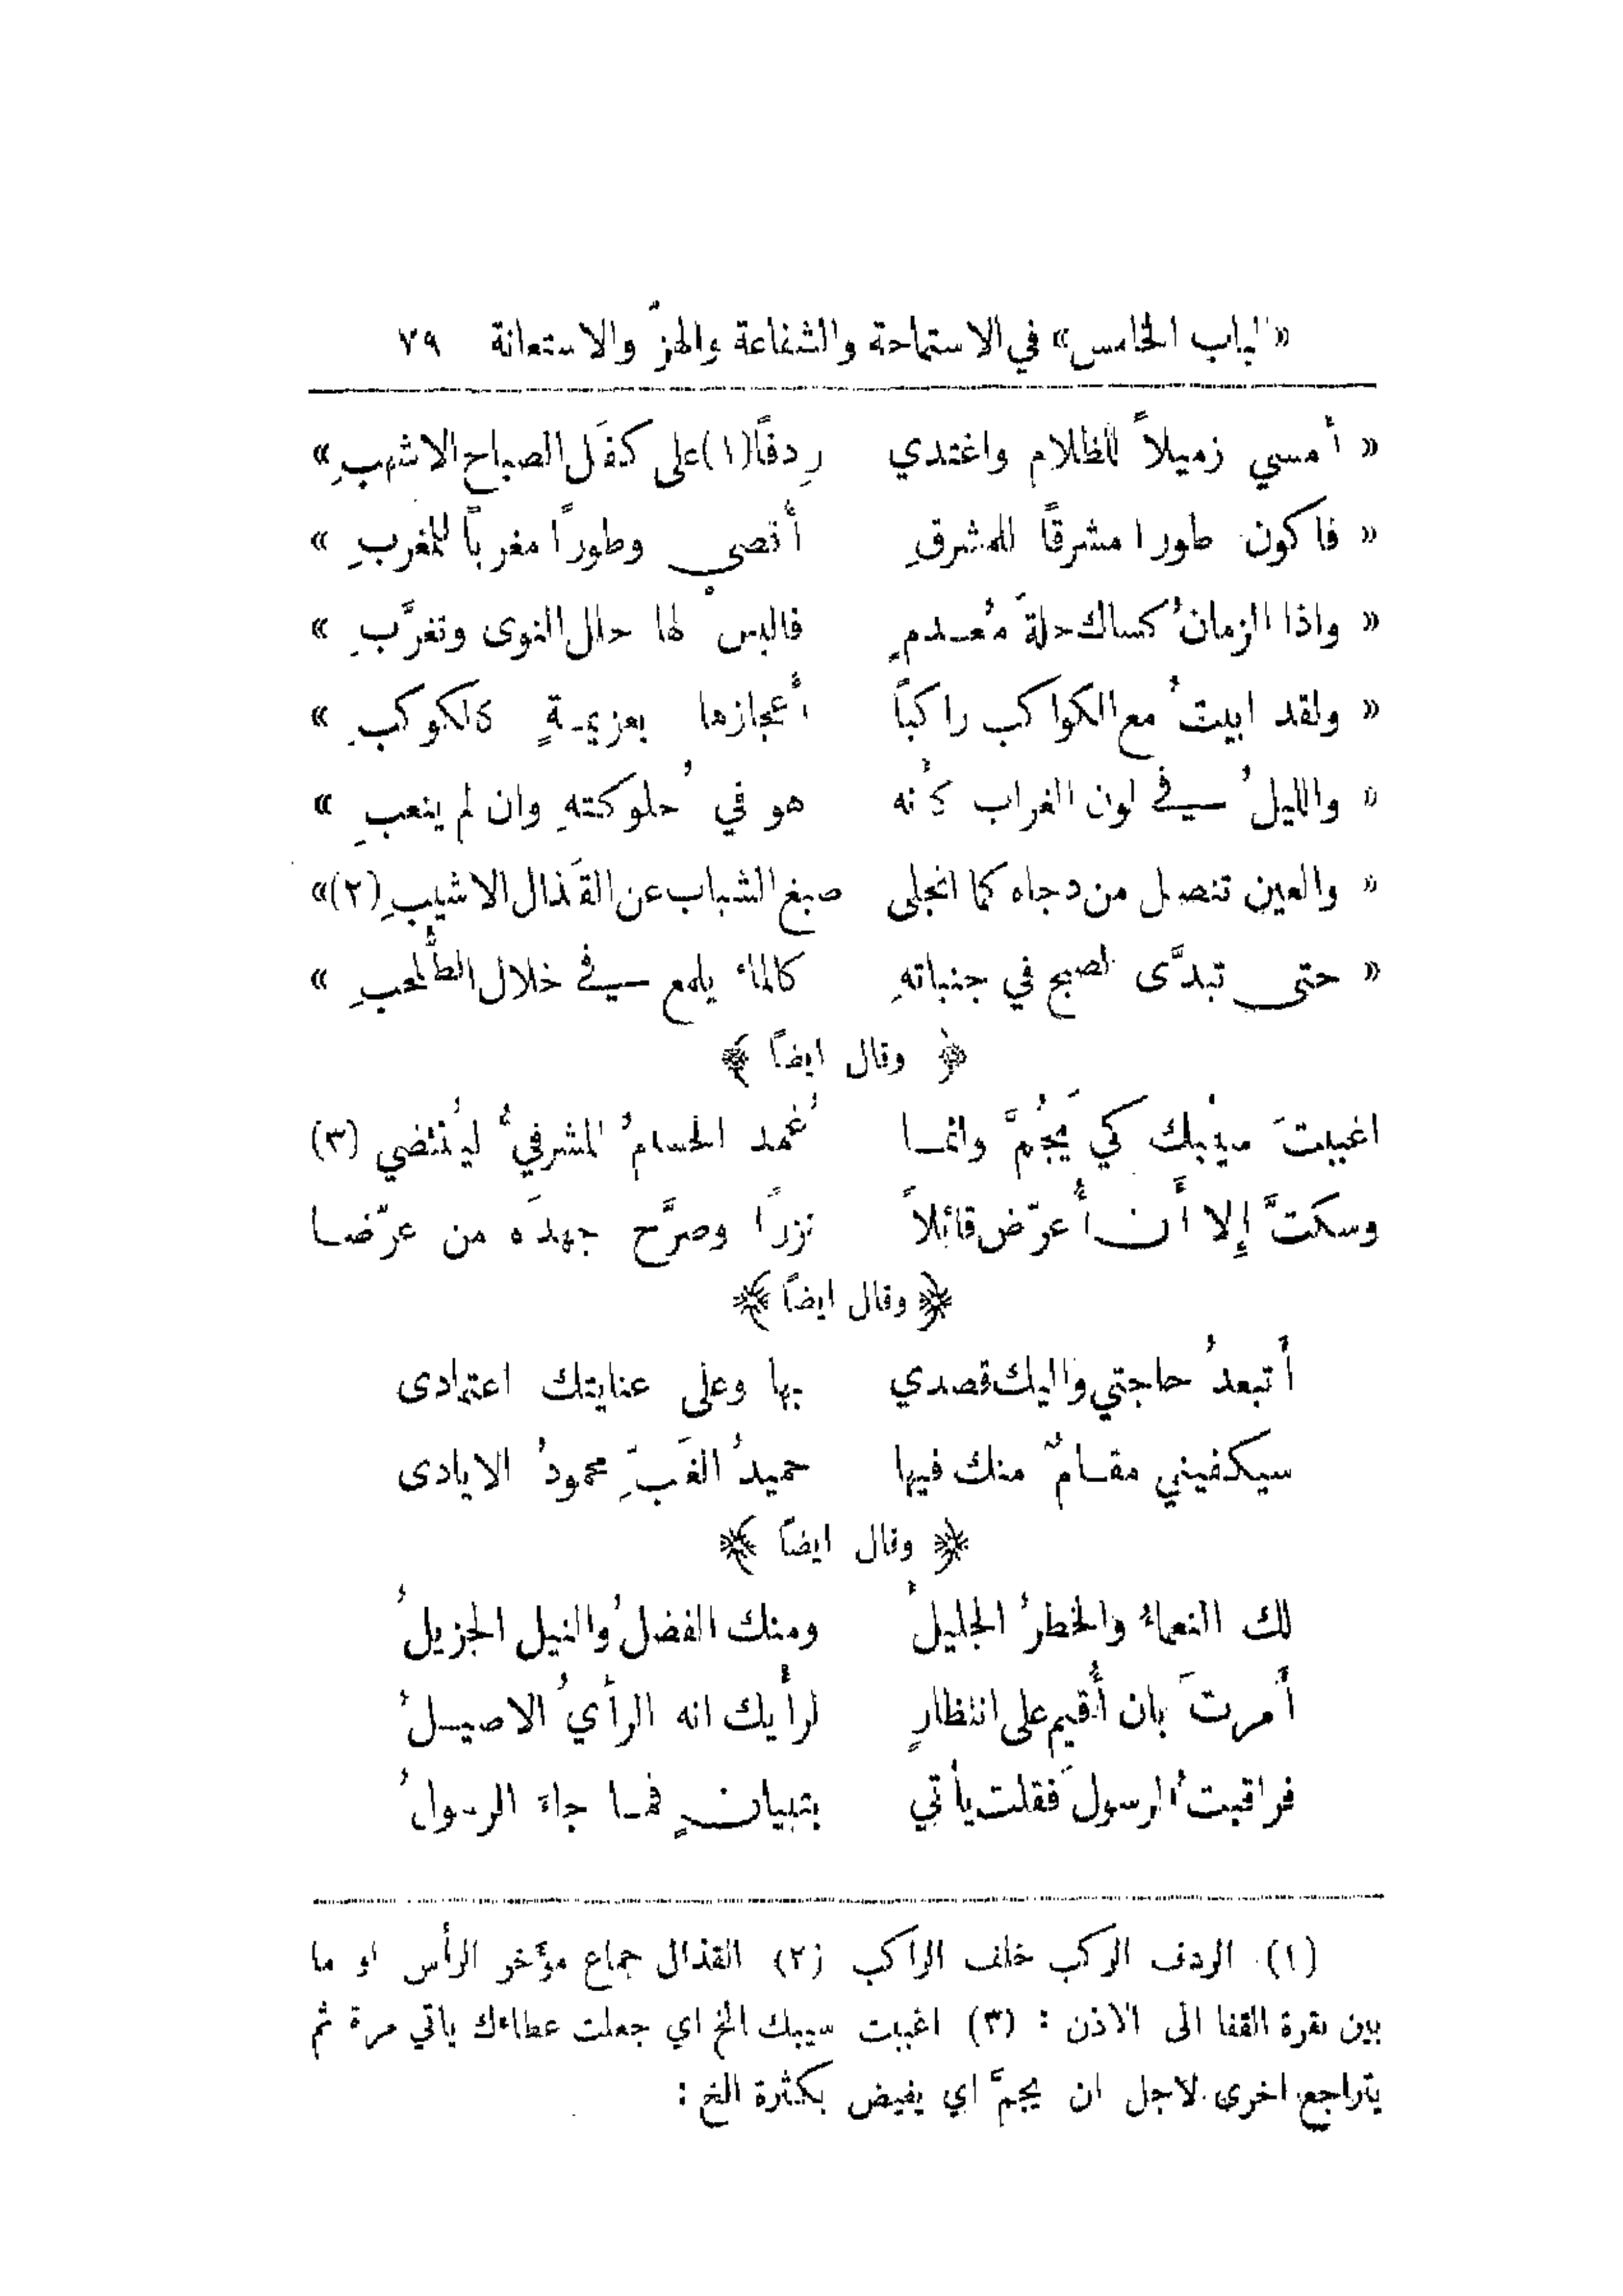 «الباب الخامس» في الاستماحة والشفاعة والهزّ والاستعانة ٧٩
« أمسي زميلاً للظلام واغتدي رِدفًا(١)على كفَل الصباح الاشهبِ»
« فاكون طورا مشرقًا للمشرقِ أقصى وطورًا مغربًا للمغربِ »
« واذا الزمانُ كساك حلةَ مُعـدمٍ فالبس لها حلل النوى وتغرَّبِ »
« ولقد ابيتُ مع الكواكب راكبًا أعجازها بعزيمـةٍ كالكوكبِ »
« والليلُ في لون الغراب كأنه هو في حُلوكتهِ وان لم ينعبِ »
« والعين تنصل من دجاه كما انجلى صبغ الشباب عن القَذال الاشيبِ(٢)»
« حتى تبدَّى الصبح في جنباتهِ كالماء يلمع في خلال الطُّحلبِ »
﴿ وقال ايضًا ﴾
اغببتَ سيبك كي يَجُمَّ وانمـا غُمد الحسامُ المشرفيُّ ليُنتضي (٣)
وسكتَّ إلا أن أُعرّض قائلاً نزرًا وصرَّح جهدَه من عرّضـا
﴿ وقال ايضًا ﴾
أتبعدُ حاجتي واليك قصدي بها وعلى عنايتك اعتمادى
سيكفيني مقـامٌ منك فيها حميدُ الغَبِّ محمودُ الايادى
﴿ وقال ايضًا ﴾
لك النعماءُ والخطرُ الجليلُ ومنك الفضلُ والنيل الجزيلُ
أمرتَ بان أُقيم على انتظارٍ لرأيك انه الرأيُ الاصيـلُ
فراقبتُ الرسولَ فقلت يأتي بتبيانٍ فمـا جاءَ الرسولُ
(١) الردف الركب خلف الراكب (٢) القذال جماع مؤخر الرأس او ما
بين نقرة القفا الى الاذن : (٣) اغببت سيبك الخ اي جعلت عطاءك ياتي مرة ثم
يتراجع اخرى لاجل ان يجمَّ اي يفيض بكثرة الخ :